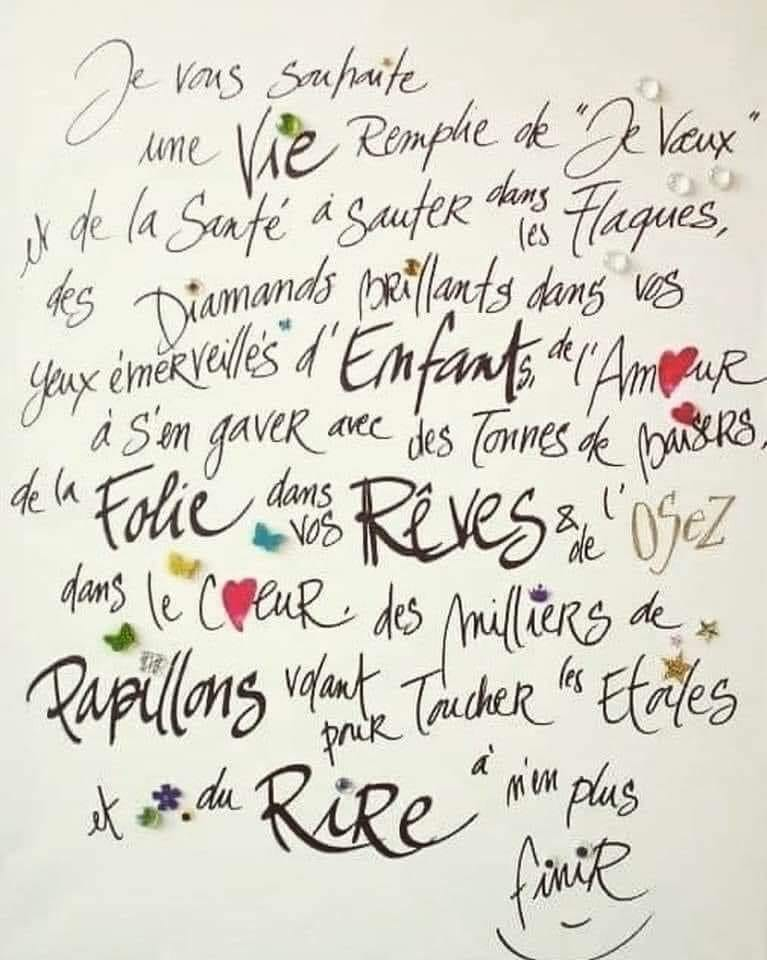 Je vous souhaite
une Vie Remplie de "Je Vœux"
et de la Santé à Sauter dans les Flaques,
des Diamands Brillants dans vos
yeux émerveillés d'Enfants, de l'Amour
à S'en gaver avec des Tonnes de Baisers,
de la Folie dans vos Rêves & de l'Osez
dans le Cœur, des Milliers de
Papillons volant pour Toucher les Etoiles
et du Rire à n'en plus
finir